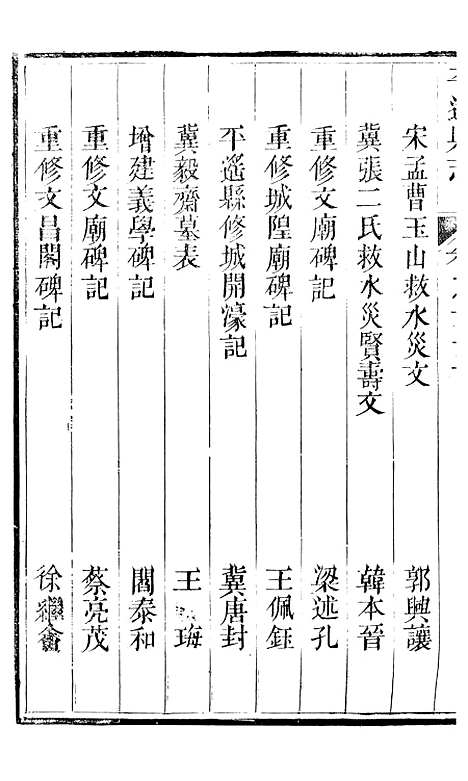 宋孟曹玉山救水災文 郭興讓
冀張二氏救水災賢壽文 韓本晉
重修文廟碑記 梁述孔
重修城隍廟碑記 王佩鈺
平遙縣修城開濠記 冀唐封
冀毅齋墓表 王
增建義學碑記 閻泰和
重修文廟碑記 蔡亮茂
重修文昌閣碑記 徐繼畬